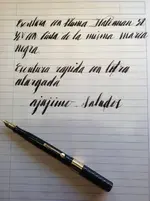 Escritura con pluma Waterman 52
con tinta de la misma marca
negra.
Escritura rapida con letra
alargada
Saludos